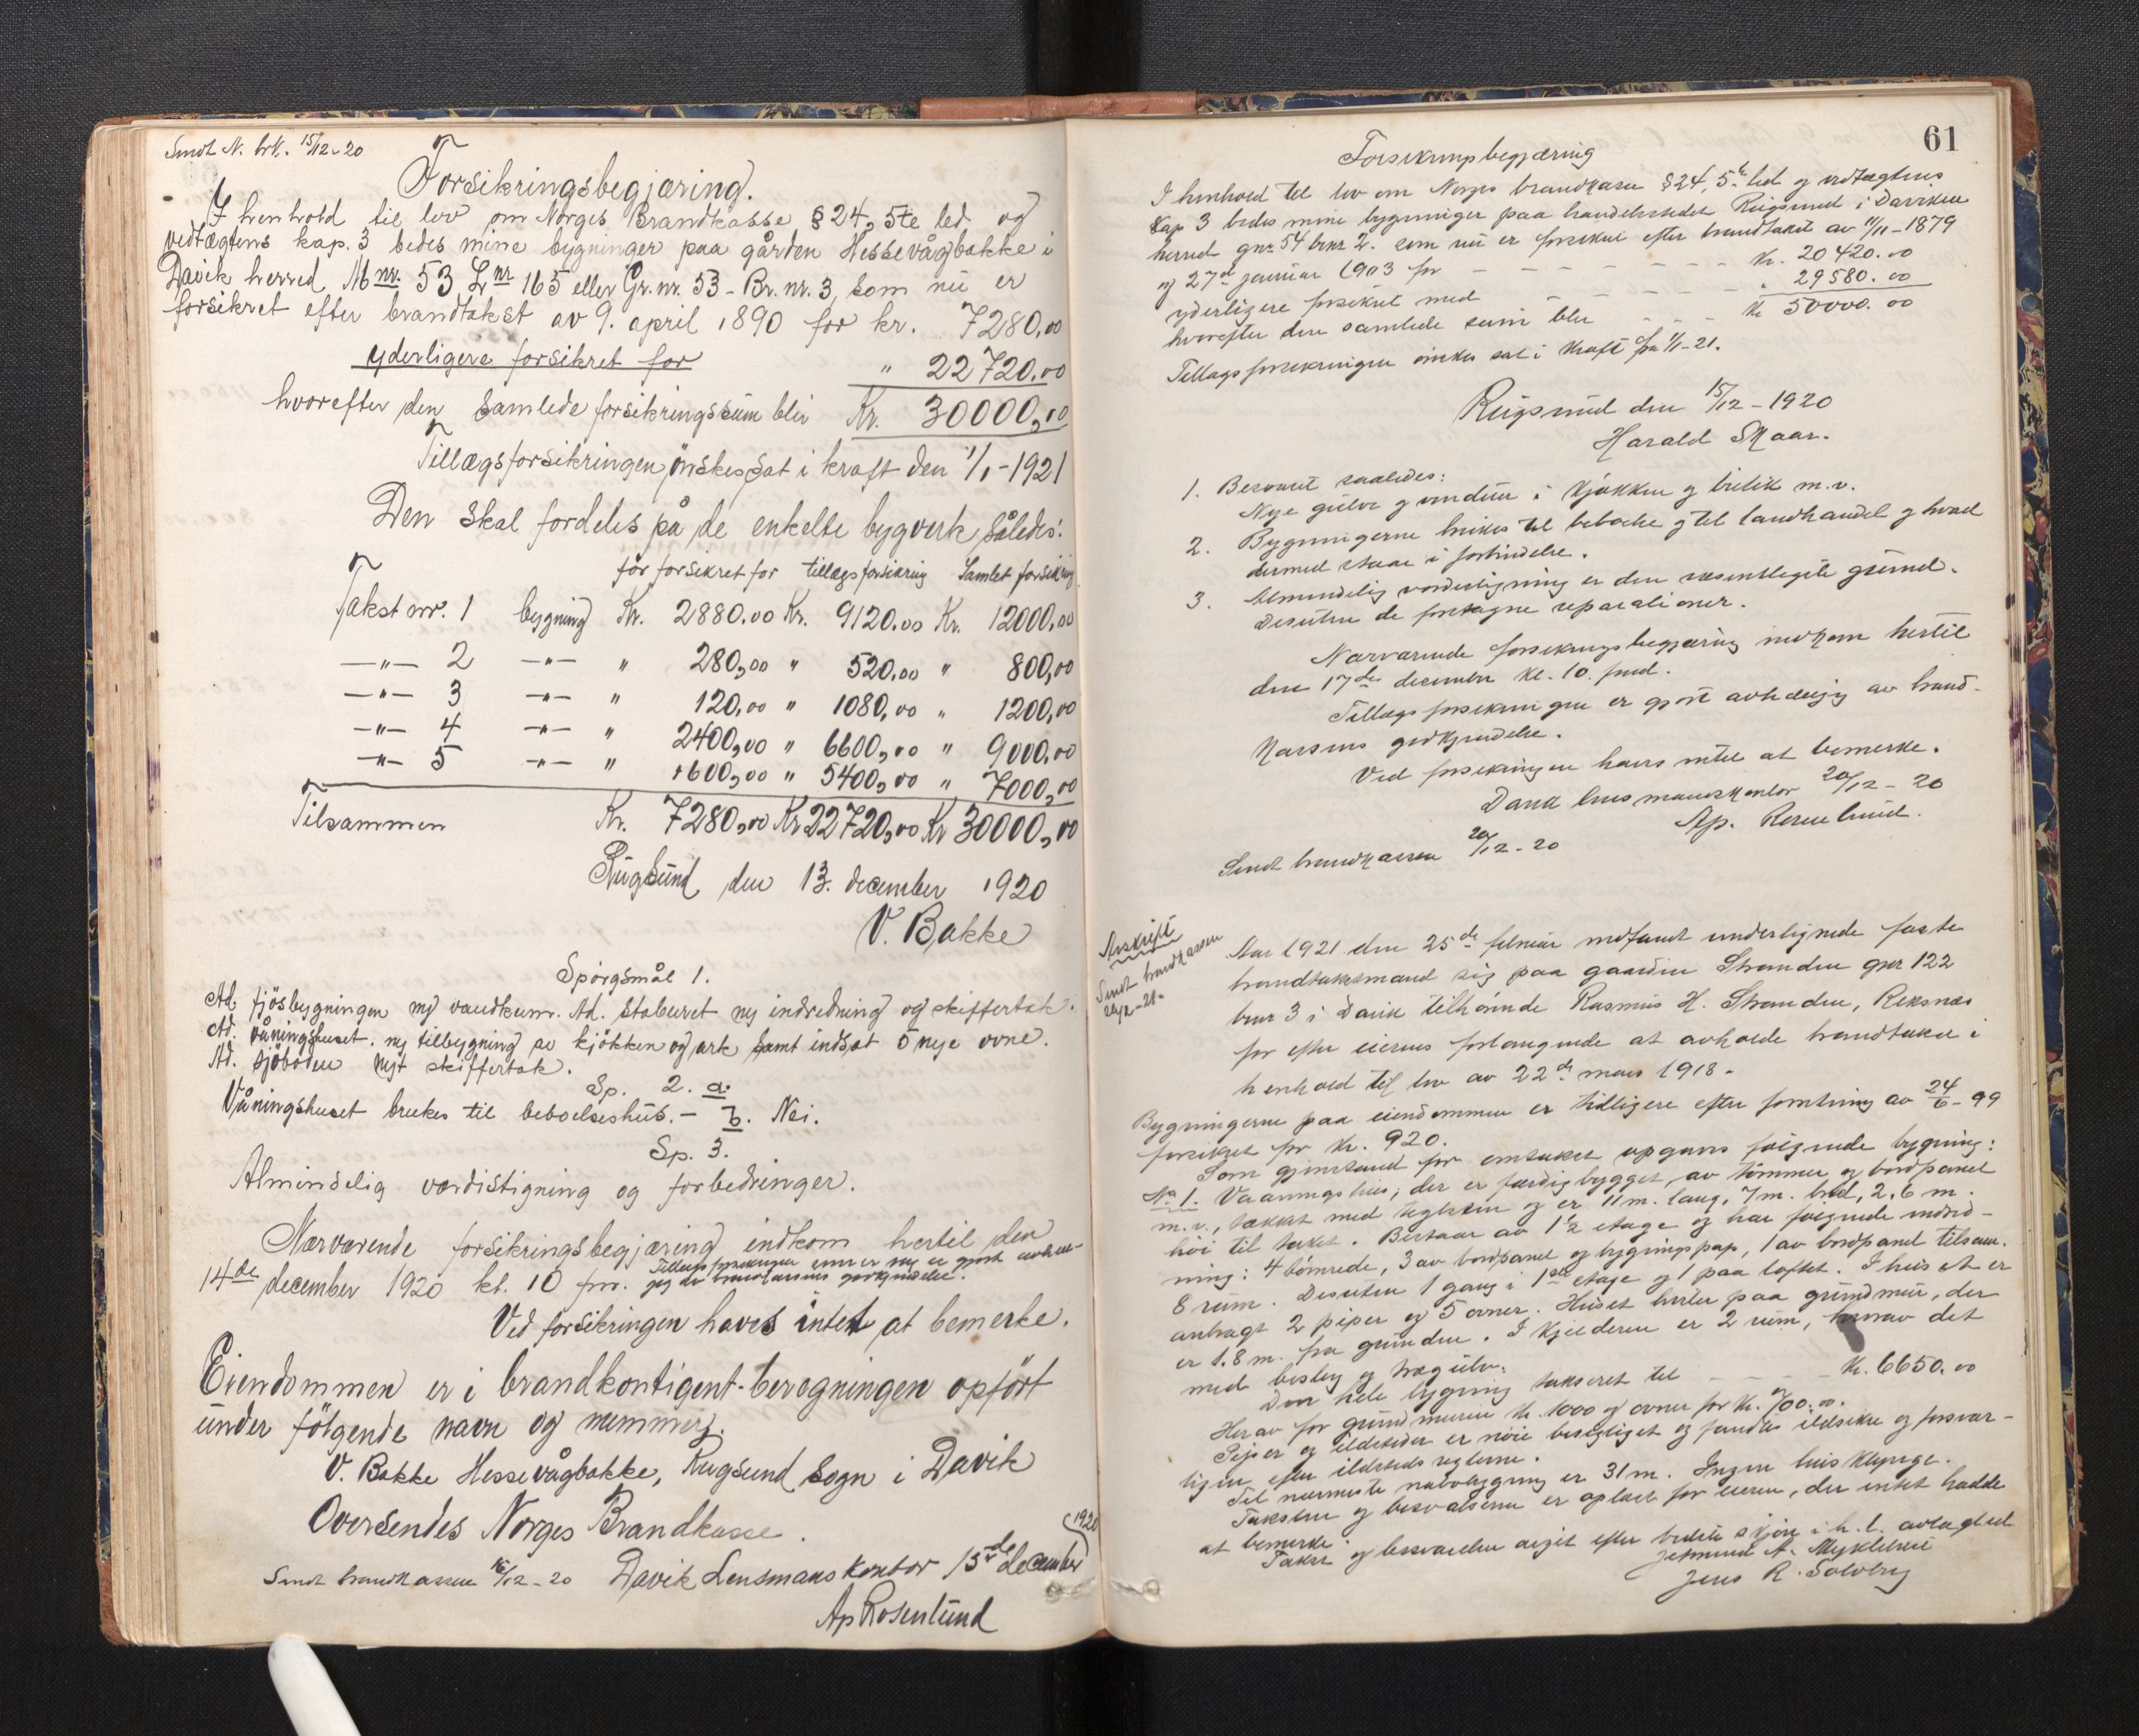 Sendt N. brk. 15/12-20
Forsikringsbegjæring.
I henhold til lov om Norges Brandkasse § 24, 5te led og
vedtægtens kap. 3 bedes mine bygninger paa gården Hessevågbakke i
Davik herred, M nr. 53 L nr 165 eller Gr. nr. 53 - Br. nr. 3, som nu er
forsikret efter brandtakst av 9. april 1890 for kr. 7280,00
yderligere forsikret for " 22720,00
hvorefter den samlede forsikringssum blir Kr. 30000,00
Tillægsforsikringen ønskes sat i kraft den 1/1-1921
Den skal fordeles på de enkelte bygverk således:
før forsikret for tillægsforsikring Samlet forsikring
Takst nr. 1 bygning Kr. 2880.00 Kr. 9120.00 Kr. 12000,00
—"— 2 —"— " 280,00 " 520,00 " 800,00
—"— 3 —"— " 120,00 " 1080,00 " 1200,00
—"— 4 —"— " 2400,00 " 6600,00 " 9000,00
—"— 5 —"— " 1600,00 " 5400,00 " 7000,00
Tilsammen Kr. 7280,00 Kr 22720,00 Kr 30000,00
Rugsund den 13. december 1920
V. Bakke
Spørgsmål 1.
Ad. fjøsbygningen ny vandkum. Ad. Staburet ny indredning og skiffertak.
Ad. våningshuset. ny tilbygning av kjøkken og ark samt indsat 5 nye ovne.
Ad. sjøboden nyt skiffertak.
Sp. 2. a.
Våningshuset brukes til beboelseshus. - b. Nei.
Sp. 3.
Almindelig værdistigning og forbedringer.
Nærværende forsikringsbegjæring indkom hertil den
14de december 1920 kl. 10 fm. Tillægsforsikringen er gjort avhæn-
gig av brandkassens godkjendelse.
Ved forsikringen haves intet at bemerke.
Eiendommen er i brandkontigent-beregningen opført
under følgende navn og nummer.
V. Bakke Hessevågbakke, Rugsund Sogn i Davik
Oversendes Norges Brandkasse.
Sendt brandkassen 15/12-20 Davik Lensmanskontor 15de december 1920
Ap Rosenlund
61
Forsikringsbegjæring
I henhold til lov om Norges brandkasse § 24, 5te led og vedtægtens
Kap 3 bedes mine bygninger paa handelsstedet Rugsund i Daviken
herred gnr 54 brnr 2. som nu er forsikret efter brandtakst av 11/11-1879
og 27de januar 1903 for - - - kr. 20420.00
yderligere forsikret med - - - " 29580.00
hvorefter den samlede sum blir - - - kr 50000.00
Tillægsforsikringen ønskes sat i kraft fra 1/1-21.
Rugsund den 15/12-1920
Harald Skaar.
1. Besvaret saaledes:
Nye gulve og vinduer i kjøkken og butik m.v.
2. Bygningerne brukes til beboelse og til landhandel og hvad
dermed staar i forbindelse.
3. Almindelig værdistigning er den væsentligste grund.
Desuten de foretagne reparationer.
Nærværende forsikringsbegjæring indkom hertil
den 17de december kl. 10 fmd.
Tillægsforsikringen er gjort avhængig av brand-
kassens godkjendelse.
Ved forsikringen haves intet at bemerke.
Davik lensmandskontor 20/12-20
Ap. Rosenlund.
Sendt brandkassen 20/12-20
Avskrift
Sendt brandkassen
26/2-21.
Aar 1921 den 25de februar indfandt undertegnede faste
brandtakstmænd sig paa gaarden Stranden gnr 122
brnr 3 i Davik tilhørende Rasmus H. Stranden, Reksnæs
for efter eierens forlangende at avholde brandtakst i
henhold til lov av 22de mars 1918.
Bygningerne paa eiendommen er tidligere efter forretning av 24/6-99
forsikret for Kr. 920.
Som gjenstand for omtakst opgaves følgende bygning:
No 1. Vaaningshus; der er færdigbygget, av tømmer og bordpanel
m.v., tækket med teglsten og er 11 m. lang, 7 m. bred, 2,6 m.
høi til taket. Bestaar av 1½ etage og har følgende indred-
ning: 4 tømrede, 3 av bordpanel og bygningspap, 1 av bordpanel tilsam.
8 rum. Desuten 1 gang i 1ste etage og 1 paa loftet. I huset er
anbragt 2 piper og 5 ovner. Huset hviler paa grundmur, der
er 1.8 m. fra grunden. I kjelderen er 2 rum, hvorav det
med beslag og trægulv.
Den hele bygning takseret til - - - Kr. 6650.00
Herav for grundmuren kr. 1000 og ovner for kr. 700.00.
Piper og ildsteder er nøie besigtiget og fandtes ildsikre og forsvar-
lige efter ildsteds reglerne.
Til nærmeste nabobygning er 31 m. Ingen husklynge.
Taksten og besvarelserne er oplæst for eieren, der intet hadde
at bemerke.
Takst og besvarelse avgit efter bedste skjøn i h.t. avlagt ed
Jetmund A. Myklebust
Jens R. Solberg